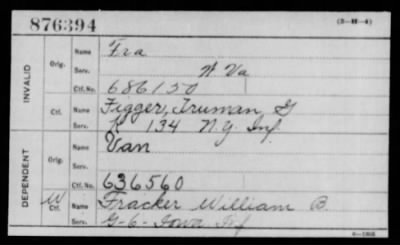 876394
(3-H-4)
INVALID
Orig. Name Fra
Serv. W Va
Ctf. No. 686150
Ctf. Name Figger, Truman G
Serv. K 134 N.Y. Inf
DEPENDENT
Orig. Name Van
Serv.
Ctf. No. 636560
W Ctf. Name Fracker William B.
Serv. G-6-Iowa Inf